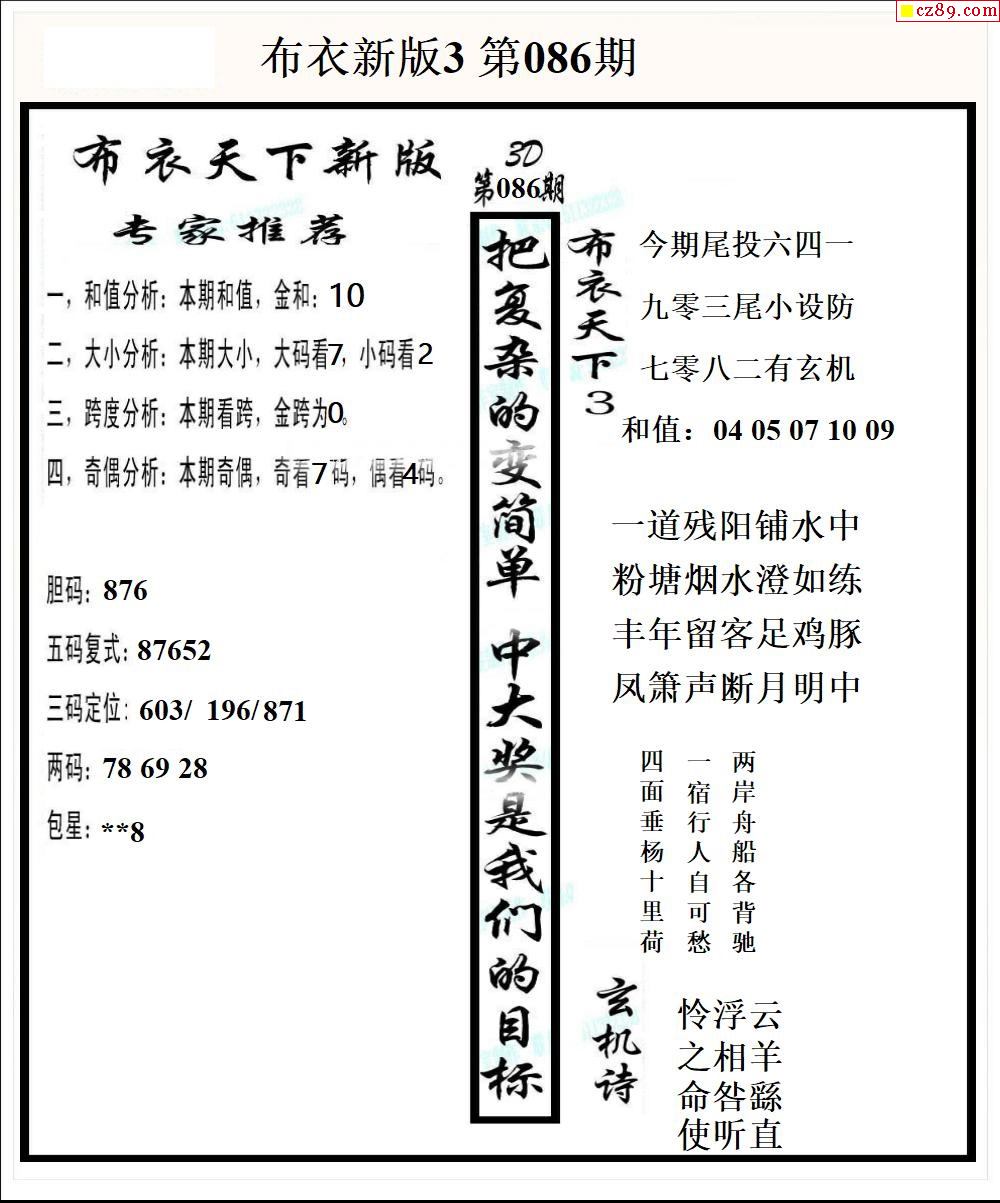 cz89.com
布衣新版3 第086期
布衣天下新版
专家推荐
一，和值分析：本期和值，金和：10
二，大小分析：本期大小，大码看7，小码看2
三，跨度分析：本期看跨，金跨为0。
四，奇偶分析：本期奇偶，奇看7码，偶看4码。
胆码：876
五码复式：87652
三码定位：603/ 196/871
两码：78 69 28
包星：**8
3D
第086期
把复杂的变简单 中大奖是我们的目标
布衣天下3
今期尾投六四一
九零三尾小设防
七零八二有玄机
和值：04 05 07 10 09
一道残阳铺水中
粉塘烟水澄如练
丰年留客足鸡豚
凤箫声断月明中
两岸舟船各背驰
一宿行人自可愁
四面垂杨十里荷
玄机诗
怜浮云
之相羊
命咎繇
使听直